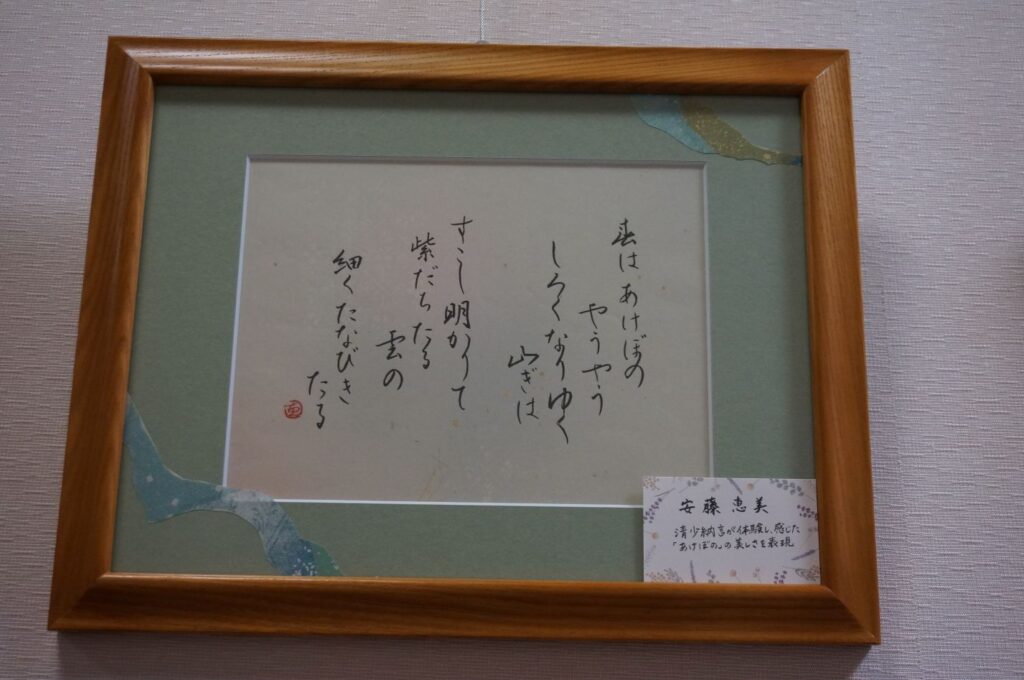 春はあけぼの
やうやう
しろくなりゆく
山ぎは
すこし明かりて
紫だちたる
雲の
細くたなびき
たる
安藤恵美
清少納言が体験し、感じた
「あけぼの」の美しさを表現